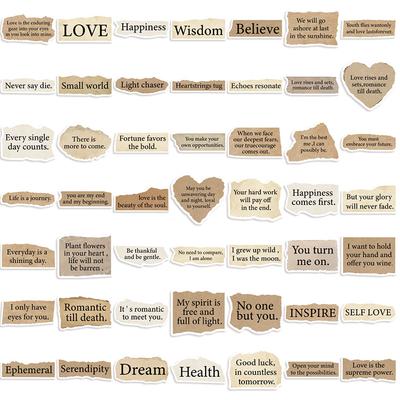 Love is the enduring
gaze into your eyes
as you look into mine
LOVE
Happiness
Wisdom
Believe
We will go
ashore at last
in the sunshine.
Youth flies wantonly
and love lastsforever.
Never say die.
Small world
Light chaser
Heartstrings tug
Echoes resonate
Love rises and sets,
romance till death.
Love rises and
sets,romance
till death.
Every single
day counts.
There is
more to come.
Fortune favors
the bold.
You make your
own opportunities.
When we face
our deepest fears,
our truecourage
comes out.
I'm the best
me ,I can
possibly be.
You must
embrace your future.
Life is a journey.
you are my end
and my beginning.
love is the
beauty of the soul.
May you be
unwavering day
and night, loyal
to yourself.
Your hard work
will pay off
in the end.
Happiness
comes first.
But your glory
will never fade.
Everyday is a
shining day.
Plant flowers
in your heart ,
life will not
be barren .
Be thankful
and be gentle.
No need to compare,
I am alone
I grew up wild ,
I was the moon.
You turn
me on.
I want to hold
your hand and
offer you wine.
I only have
eyes for you.
Romantic
till death.
It's romantic
to meet you.
My spirit is
free and
full of light.
No one
but you.
INSPIRE
SELF LOVE
Ephemeral
Serendipity
Dream
Health
Good luck,
in countless
tomorrow.
Open your mind
to the possibilities.
Love is the
supreme power.